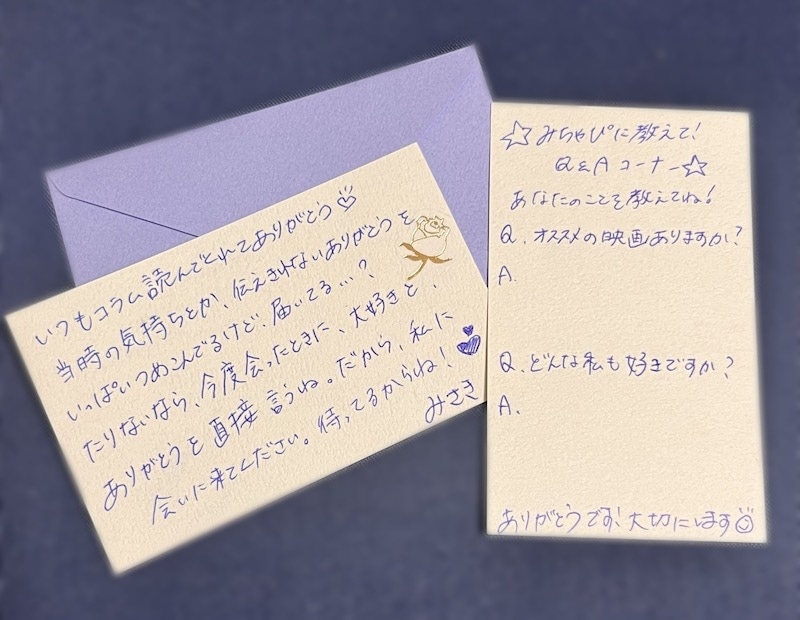 いつもコラム読んでくれてありがとう
当時の気持ちとか、伝えきれないありがとうを
いっぱいつめこんでるけど、届いてる…?
たりないなら、今度会ったときに、大好きと、
ありがとうを直接言うね。だから、私に
会いに来てください。待ってるからね!
みさき
☆みちゃぴに教えて!
Q&Aコーナー☆
あなたのことを教えてね!
Q. オススメの映画ありますか?
A.
Q. どんな私も好きですか?
A.
ありがとうです!大切にします